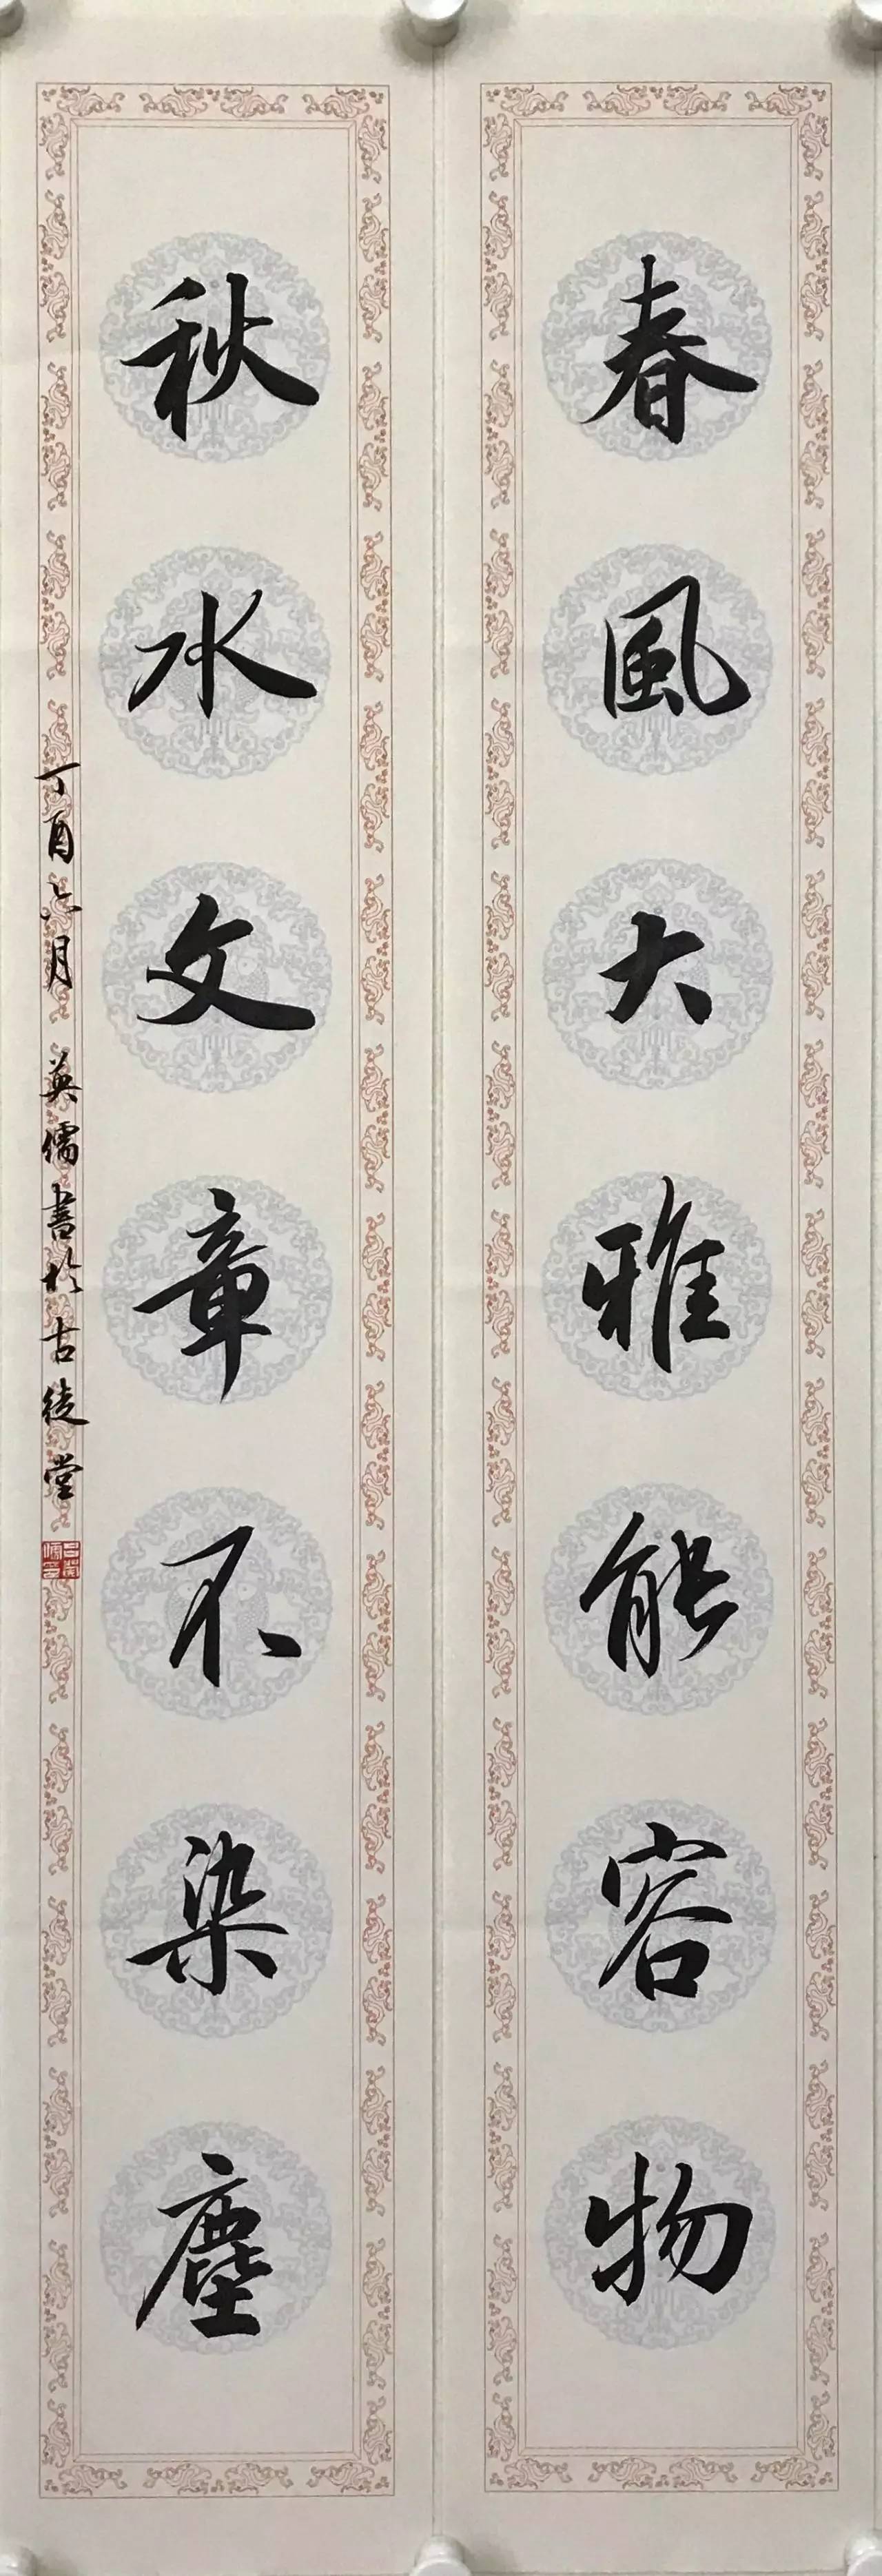 春風大雅能容物
秋水文章不染塵
丁酉六月 英儒書於古徒堂